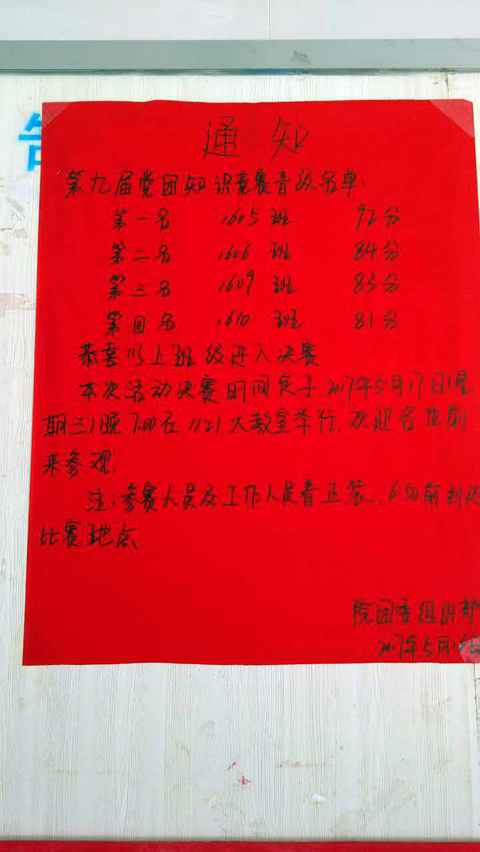 告
通知
第九届党团知识竞赛晋级名单:
第一名 1605班 92分
第二名 1606班 84分
第三名 1609班 83分
第四名 1610班 81分
恭喜以上班级进入决赛
本次活动决赛时间定于2017年5月17日(星
期三)晚7:00在1121大教室举行,欢迎各位前
来参观.
注:参赛人员及工作人员着正装,6:50前到达
比赛地点
院团委组织部
2017年5月